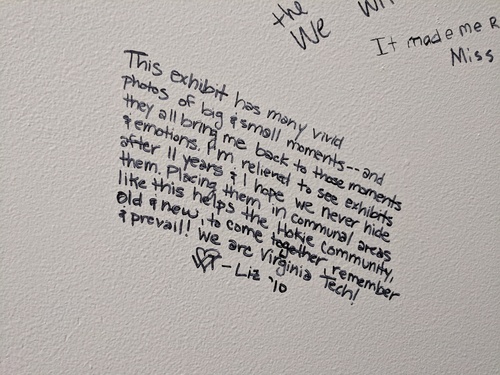 the
We
It made me R
Miss
This exhibit has many vivid
photos of big & small moments--and
they all bring me back to those moments
& emotions. I'm relieved to see exhibits
after 11 years & I hope we never hide
them. Placing them in communal areas
like this helps the Hokie Community,
old & new, to come together remember
& prevail! We are Virginia Tech!
- Liz '10